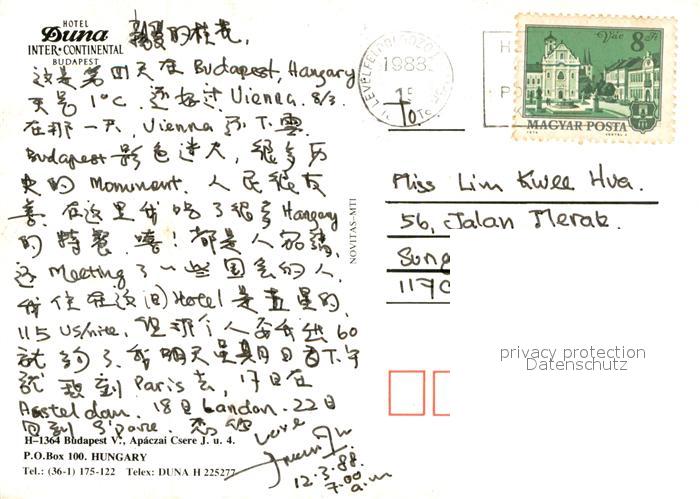 HOTEL
Duna
INTER·CONTINENTAL
BUDAPEST
親愛的桂花,
这是第四天在 Budapest, Hangary
天气 1°C. 还好过 Vienna. 8/3.
在那一天, Vienna 还下雪
Budapest 景色迷人, 很多历
史的 Monument. 人民很友
善. 在这里我吃了很多 Hangary
的特餐. 嘻! 都是人家请.
还 Meeting 了一些国会的人.
我住在这间 Hotel 是五星的.
115 US/nite. 但那个人要我出 60
就够了. 我明天星期日下午
就 到 Paris 去, 17日在
Amsteldam. 18日 Landon. 22日
回到 S'pore.
Love
12.3.88.
7.00
a.m
H–1364 Budapest V., Apáczai Csere J. u. 4.
P.O.Box 100. HUNGARY
Tel.: (36-1) 175-122 Telex: DUNA H 225277
NOVITAS–MTI
1988
Vác 8 Ft
MAGYAR POSTA
To.
Miss Lim Kwee Hua.
56, Jalan Merak.
Sung
1170
privacy protection
Datenschutz